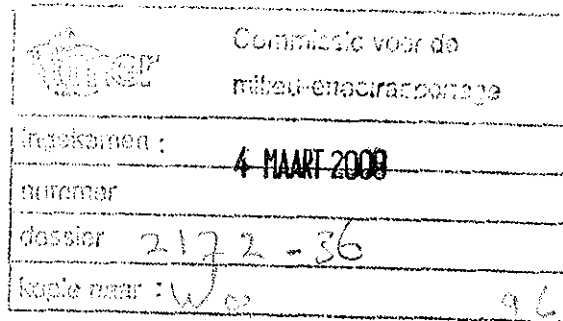 mer
Commissie voor de
milieu-effectrapportage
ingekomen :
4 MAART 2008
nummer
dossier 2172-36
kopie naar :